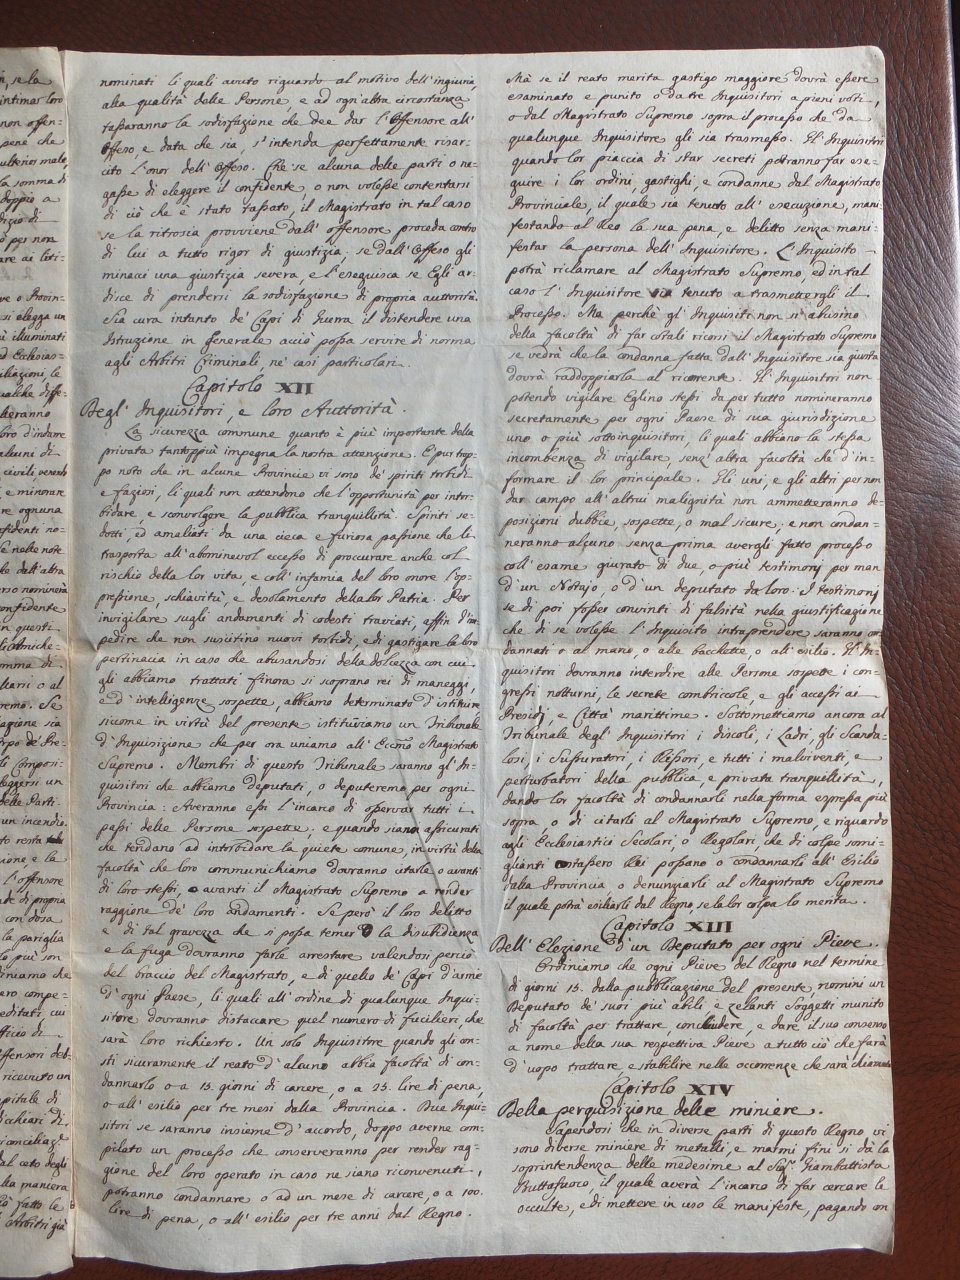 nominati li quali avuto riguardo al motivo dell'ingiuria,
alla qualità delle Persone, e ad ogn'altra circostanza
tasseranno la sodisfazione che dee dar l'Offensore all'
Offeso, e data che sia, s'intenda perfettamente risar-
cito l'onor dell'Offeso. Che se alcuna delle parti o ne-
gasse di eleggere il confidente, o non volesse contentarsi
di ciò che è stato tassato, il Magistrato in tal caso
se la ritrosia provviene dall'offensore proceda contro
di lui a tutto rigor di giustizia; se dall'Offeso gli
minacci una giustizia severa, e l'eseguisca se Egli ar-
disce di prendersi la sodisfazione di propria auttorità.
Sia cura intanto de' Capi di Guerra il distendere una
Istruzione in generale acciò possa servire di norma
agli Arbitri Criminali, ne' casi particolari.
Capitolo XII
Degl'Inquisitori, e loro Auttorità.
La sicurezza commune quanto è più importante della
privata tantoppiù impegna la nostra attenzione. E' pur trop-
po noto che in alcune Provincie vi sono de' spiriti torbidi
e faziosi, li quali non attendono che l'opportunità per intor-
bidare, e sconvolgere la pubblica tranquillità. Spiriti se-
dotti, ed ameliati da una cieca e furiosa passione che li
trasporta all'abominevol eccesso di procurare anche col
rischio della lor vita, e coll'infamia del loro onore l'op-
pressione, schiavitù, e desolamento della lor Patria. Per
invigilare sugli andamenti di codesti traviati, affin d'im-
pedire che non suscitino nuovi torbidi, e di gastigare la loro
pertinacia in caso che abusandosi della dolcezza con cui
gli abbiamo trattati finora si scoprano rei di maneggi,
e d'intelligenze sospette, abbiamo determinato d'istituire
siccome in virtù del presente istituiamo un Tribunale
d'Inquisizione che per ora uniamo all'Eccmo Magistrato
Supremo. Membri di questo Tribunale saranno gl'In-
quisitori che abbiamo deputati, o deputeremo per ogni
Provincia: Averanno essi l'incarico di osservar tutti i
passi delle Persone sospette, e quando siano assicurati
che tendano ad intorbidare la quiete comune, in virtù della
facoltà che loro communichiamo dovranno citarle o avanti
di loro stessi, o avanti il Magistrato Supremo a render
raggione de' loro andamenti. Se però il loro delitto
e di tal gravezza che si possa temer o la disubidienza
e la fuga dovranno farle arrestare valendosi perciò
del braccio del Magistrato, e di quello de' Capi d'arme
d'ogni Paese, li quali all'ordine di qualunque Inqui-
sitore dovranno distaccare quel numero di fucilieri, che
sarà loro richiesto. Un solo Inquisitore quando gli con-
sti sicuramente il reato d'alcuno abbia facoltà di con-
dannarlo o a 15. giorni di carcere, o a 25. lire di pena,
o all'esilio per tre mesi dalla Provincia. Due Inqui-
sitori se saranno insieme d'accordo, doppo averne com-
pilato un processo che conserveranno per render rag-
gione del loro operato in caso ne siano riconvenuti,
potranno condannare o ad un mese di carcere, o a 100.
lire di pena, o all'esilio per tre anni dal Regno.
Mà se il reato merita gastigo maggiore dovrà essere
esaminato e punito o da tre Inquisitori a pieni voti,
o dal Magistrato Supremo sopra il processo che da
qualunque Inquisitore gli sia trasmesso. Gl'Inquisitori
quando lor piaccia di star secreti potranno far ese-
guire i lor ordini, gastighi, e condanne dal Magistrato
Provinciale, il quale sia tenuto all'esecuzione, mani-
festando al Reo la sua pena, e delitto senza mani-
festar la persona dell'Inquisitore. L'Inquisito
potrà riclamare al Magistrato Supremo, ed in tal
caso l'Inquisitore sia tenuto a trasmettergli il
Processo. Ma perchè gl'Inquisiti non si abusino
della facoltà di far cotali ricorsi il Magistrato Supremo
se vedrà che la condanna fatta dall'Inquisitore sia giusta
dovrà raddoppiarla al ricorrente. Gl'Inquisitori non
potendo vigilare Eglino stessi da per tutto nomineranno
secretamente per ogni Paese di sua giurisdizione
uno o più sottoinquisitori, li quali abbiano la stessa
incombenza di vigilare, senz'altra facoltà che d'in-
formare il lor principale. Gli uni, e gli altri per non
dar campo all'altrui malignità non ammetteranno de-
posizioni dubbie, sospette, o mal sicure, e non condan-
neranno alcuno senza prima avergli fatto processo
coll'esame giurato di due, o più testimonj per man
d'un Notajo, o d'un deputato da loro. I testimonj
se di poi fosser convinti di falsità nella giustificazione
che di se volesse l'Inquisito intraprendere saranno con
dannati o al mano, o alle bacchette, o all'esilio. Gl'In-
quisitori dovranno interdire alle Persone sospette i con-
gressi notturni, le secrete combricole, e gli accessi ai
Presidj, e Città marittime. Sottomettiamo ancora al
Tribunale degl'Inquisitori i discoli, i Ladri, gli Scanda-
losi, i Susurratori, i Rissosi, e tutti i malviventi, e
perturbatori della pubblica e privata tranquillità,
dando lor facoltà di condannarli nella forma espressa più
sopra, o di citarli al Magistrato Supremo, e riguardo
agli Ecclesiastici Secolari, o Regolari, che di colpe somi-
glianti costassero Rei possano o condannarli all'Esilio
dalla Provincia, o denunziarli al Magistrato Supremo
il quale potrà esiliarli dal Regno, se la lor colpa lo merita.
Capitolo XIII
Dell'Elezione d'un Deputato per ogni Pieve.
Ordiniamo che ogni Pieve del Regno nel termine
di giorni 15. dalla pubblicazione del presente, nomini un
Deputato de' suoi più abili e zelanti Soggetti munito
di facoltà per trattare, concludere, e dare il suo consenso
a nome della sua respettiva Pieve a tutto ciò che farà
d'uopo trattare e stabilire nelle occorrenze che sarà chiamato
Capitolo XIV
Della perquisizione delle miniere.
Sapendosi che in diverse parti di questo Regno vi
sono diverse miniere di metalli, e marmi fini si dà la
soprintendenza delle medesime al Sigr. Giambattista
Buttafuoco, il quale averà l'incarico di far cercare le
occulte, e di mettere in uso le manifeste, pagando con